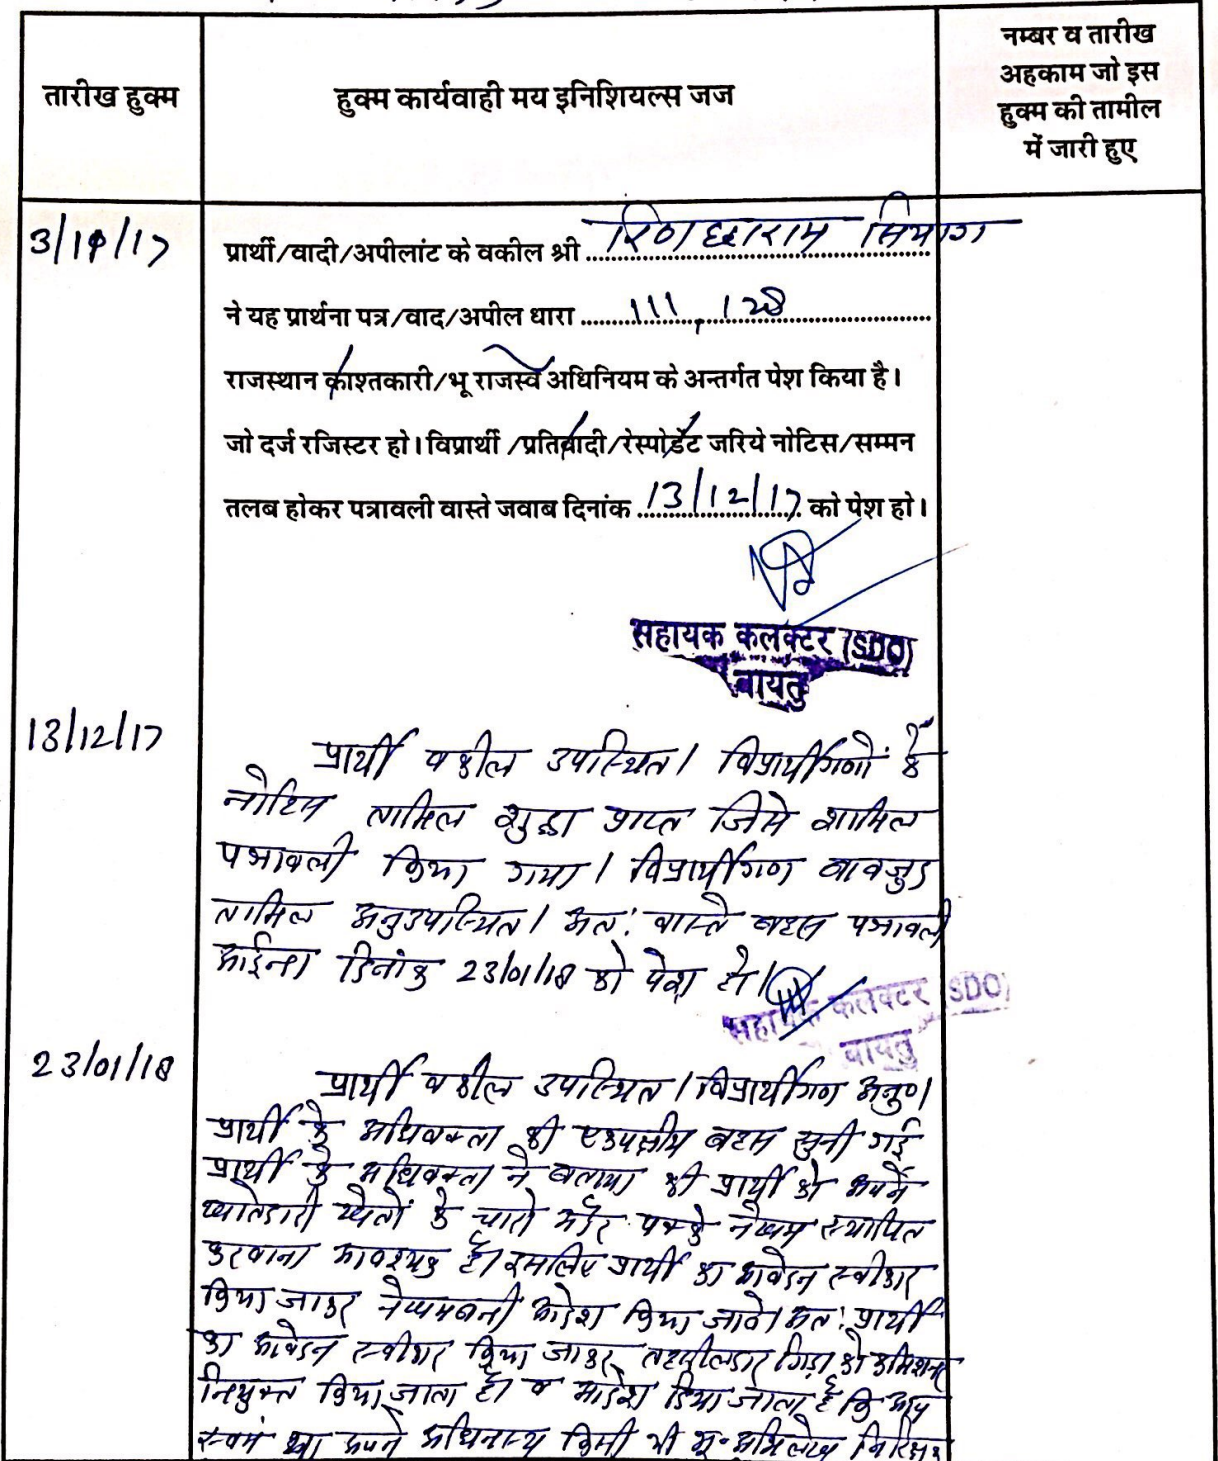 तारीख हुक्म
हुक्म कार्यवाही मय इनिशियल्स जज
नम्बर व तारीख
अहकाम जो इस
हुक्म की तामील
में जारी हुए
3/11/17
प्रार्थी/वादी/अपीलांट के वकील श्री सियाग
ने यह प्रार्थना पत्र/वाद/अपील धारा 111, 128
राजस्थान काश्तकारी/भू राजस्व अधिनियम के अन्तर्गत पेश किया है।
जो दर्ज रजिस्टर हो। विप्रार्थी /प्रतिवादी/रेस्पोडेंट जरिये नोटिस/सम्मन
तलब होकर पत्रावली वास्ते जवाब दिनांक 13/12/17 को पेश हो।
सहायक कलक्टर (SDO)
बायतु
13/12/17
प्रार्थी वकील उपस्थित। विप्रार्थीगणों के
नोटिस तामिल शुदा प्राप्त जिसे शामिल
पत्रावली किया गया। विप्रार्थीगण बावजुद
तामिल अनुउपस्थित। अत: वास्ते बहस पत्रावली
आईन्दा दिनांक 23/01/18 को पेश हो।
सहायक कलक्टर (SDO)
बायतु
23/01/18
प्रार्थी वकील उपस्थित। विप्रार्थीगण अनु०।
प्रार्थी के अधिवक्ता की एकपक्षीय बहस सुनी गई
प्रार्थी के अधिवक्ता ने बताया की प्रार्थी को अपने
खातेदारी खेतों के चारो ओर पक्के नेखम स्थापित
करवाना आवश्यक है। इसलिए प्रार्थी का आवेदन स्वीकार
किया जाकर नेखमबन्दी आदेश किया जावे। अत: प्रार्थी
का आवेदन स्वीकार किया जाकर तहसीलदार गिड़ा को कमिशनर
नियुक्त किया जाता है। व आदेश दिया जाता है कि आप
स्वयं या अपने अधिनस्थ किसी भी भू-अभिलेख निरिक्षक